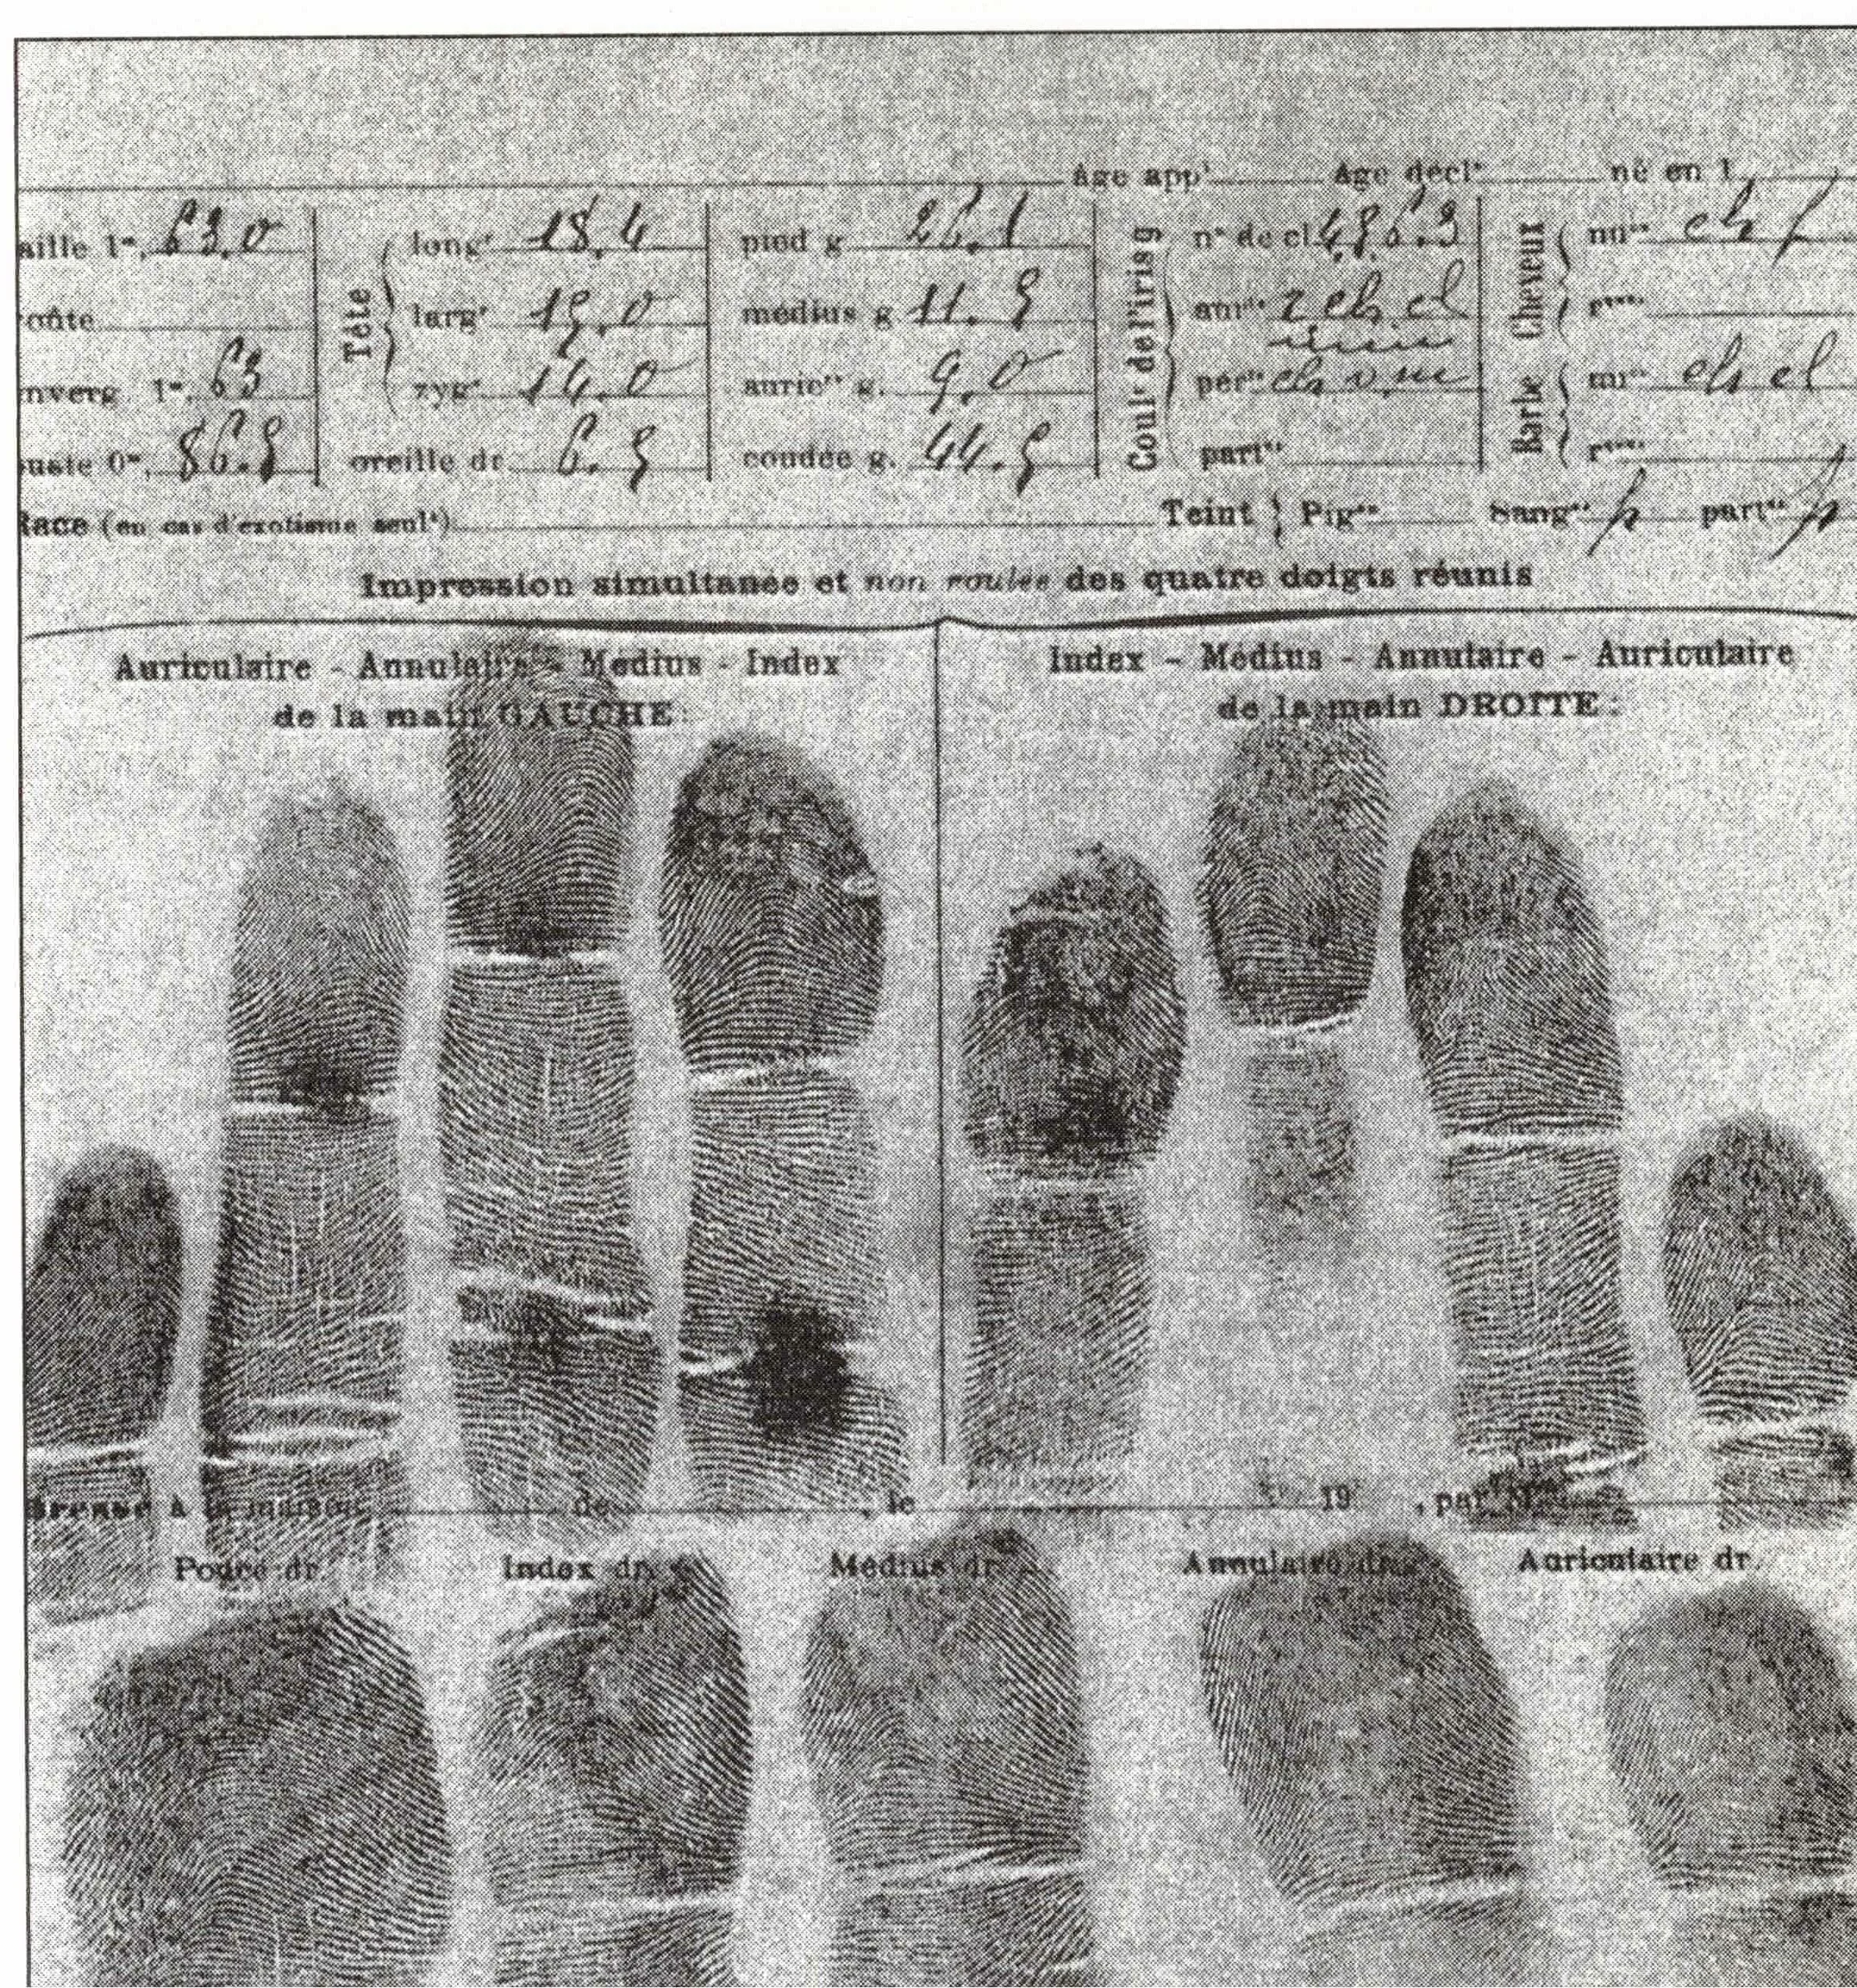 Age app^t Age décl^é né en 1
aille 1^m, 63.0 long^r 18,4 pied g 26.1 n° de cl 4.5.6.3 nu^ce ch f
oûte larg^r 15,0 médius g. 11.5 aur^le
nverg. 1^m, 63 zyg^e 14,0 auric^re g. 9,0 pér^ie mr^ce ch cl
uste 0^m, 86.5 oreille dr. 6.5 coudée g. 44.5 part^és
Tête
Coul^r de l'iris g
Cheveux
Barbe
Race (en cas d'exotisme seul^t) Teint Pig^re Sang^ne p part^és p
Impression simultanée et non roulée des quatre doigts réunis
Auriculaire - Annulaire - Médius - Index
de la main GAUCHE :
Index - Médius - Annulaire - Auriculaire
de la main DROITE :
Dressé à la maison de , le 19 , par M
Pouce dr. Index dr. Médius dr. Annulaire dr. Auriculaire dr.